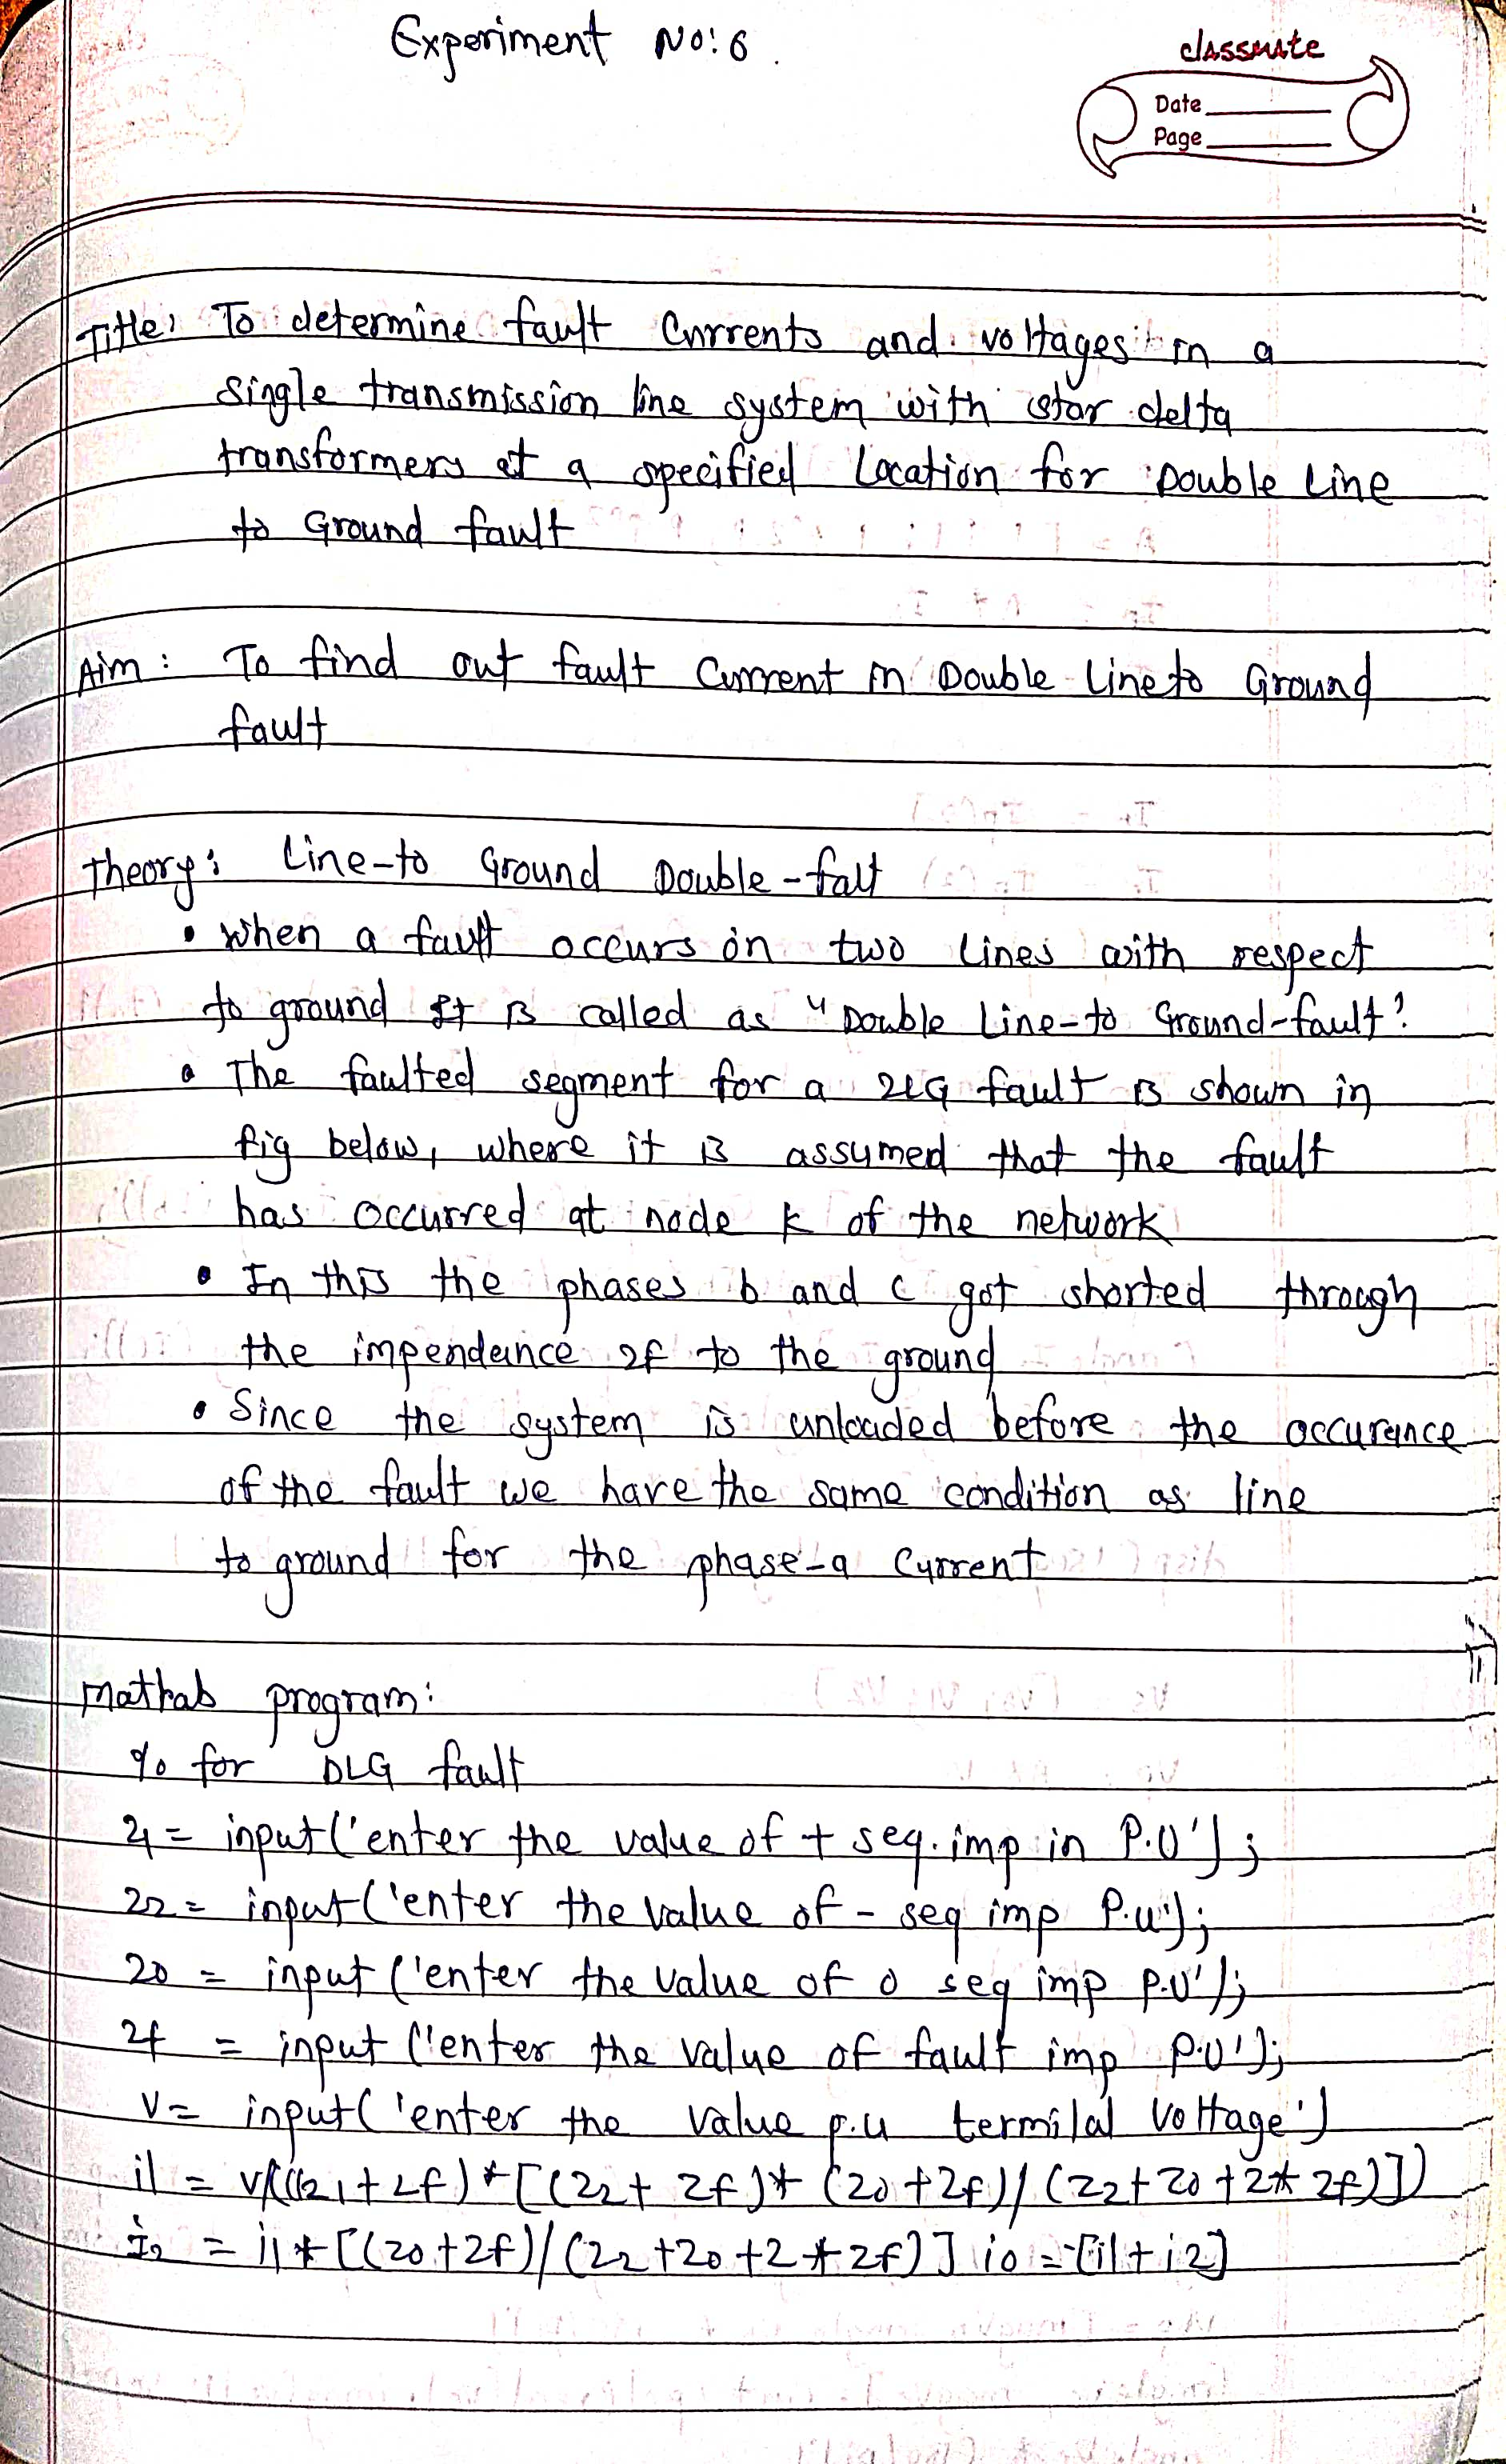 Experiment No: 6.
classmate
Date
Page
Title: To determine fault Currents and voltages in a
single transmission line system with star delta
transformers at a specified Location for Double Line
to Ground fault
Aim: To find out fault Current in Double Line to Ground
fault
Theory: Line-to Ground Double-falt
• When a fault occurs on two lines with respect
to ground It is called as "Double Line-to Ground-fault"
• The faulted segment for a 2LG fault is shown in
fig below, where it is assumed that the fault
has occurred at node k of the network
• In this the phases b and c got shorted through
the impendence zf to the ground
• Since the system is unloaded before the occurance
of the fault we have the same condition as line
to ground for the phase-a Current
Matlab program:
% for DLG fault
z1 = input('enter the value of + seq. imp in P.U');
z2 = input('enter the value of - seq imp P.u');
z0 = input('enter the value of 0 seq imp P.U');
zf = input('enter the value of fault imp P.U');
V = input('enter the value p.u termilal Voltage')
i1 = v/((z1+zf)*[(z2+zf)*(z0+zf)/(z2+z0+2*zf)])
I2 = i1*[(z0+zf)/(z2+z0+2*zf)] i0 = -[i1+i2]